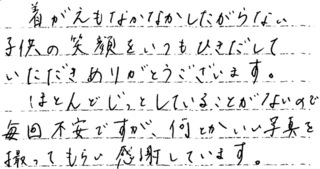 着がえもなかなかしたがらない
子供の笑顔をいつもひきだして
いただきありがとうございます。
ほとんどじっとしていることがないので
毎回不安ですが、何とかいい写真を
撮ってもらい感謝しています。